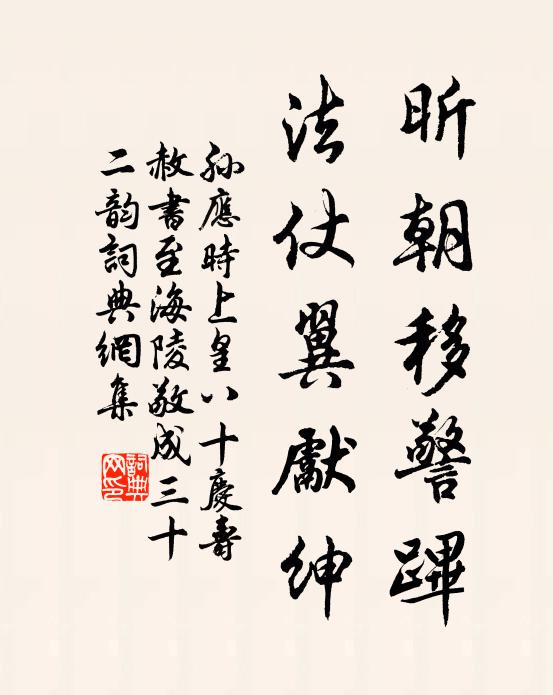 昕朝移警蹕
法仗翼獻紳
孫應時上皇八十慶壽
赦書至海陵敬成三十
二韵詞典網集
詞典网印